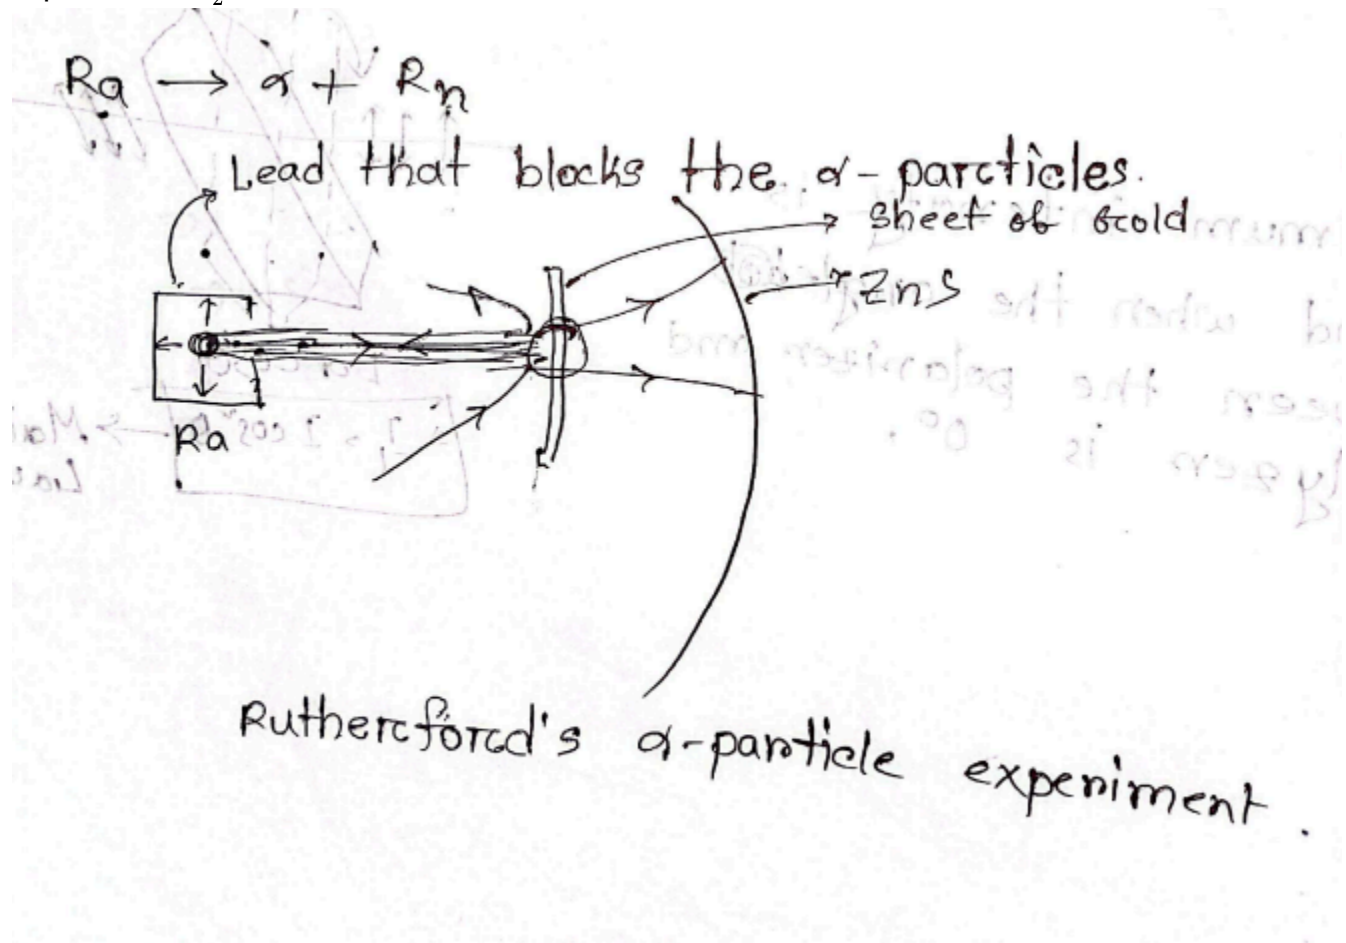 2
Ra → α + Rn
Lead that blocks the α-particles.
sheet of Gold
ZnS
Ra
Rutherford's α-particle experiment.